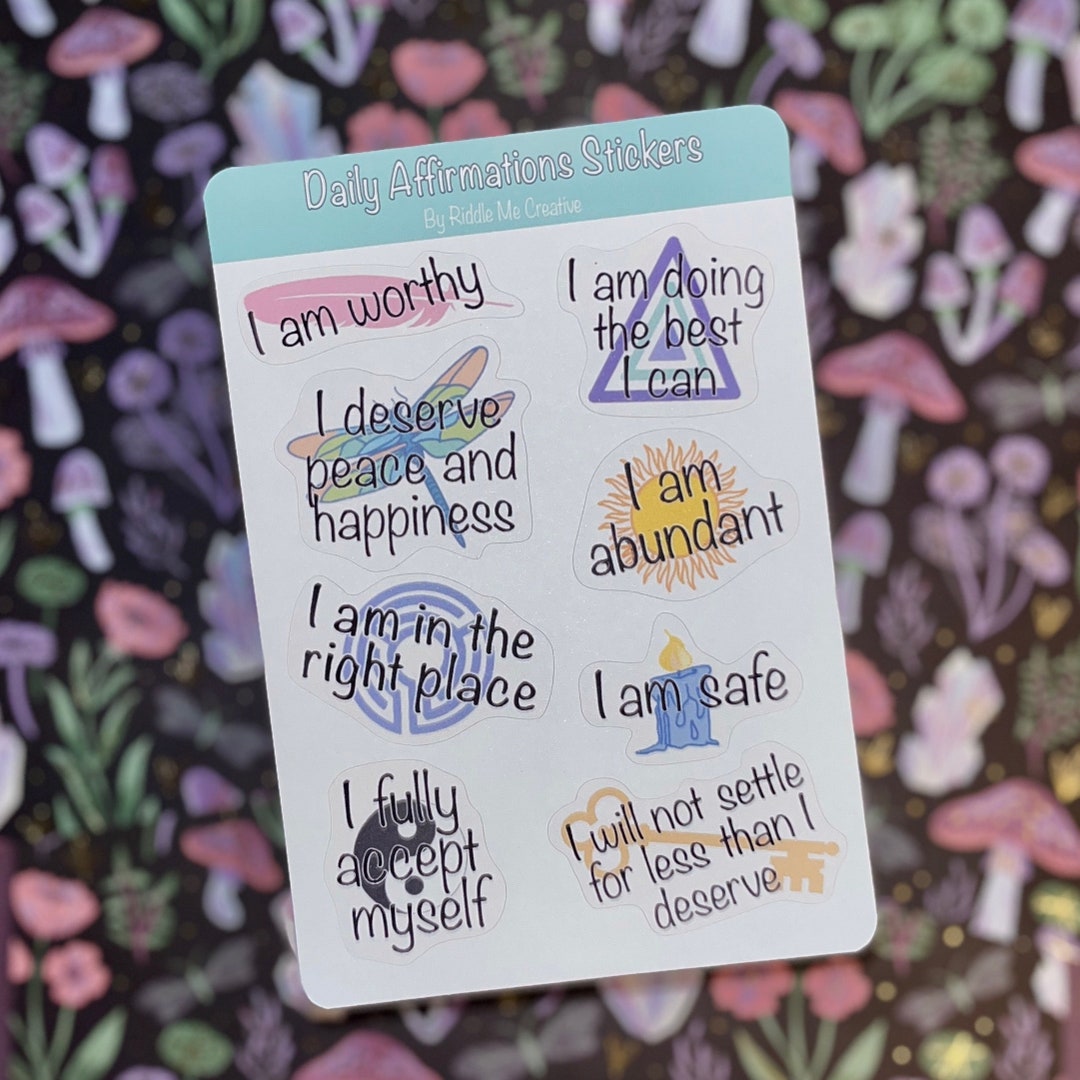 Daily Affirmations Stickers
By Riddle Me Creative
I am worthy
I am doing
the best
I can
I deserve
peace and
happiness
I am
abundant
I am in the
right place
I am safe
I fully
accept
myself
I will not settle
for less than I
deserve